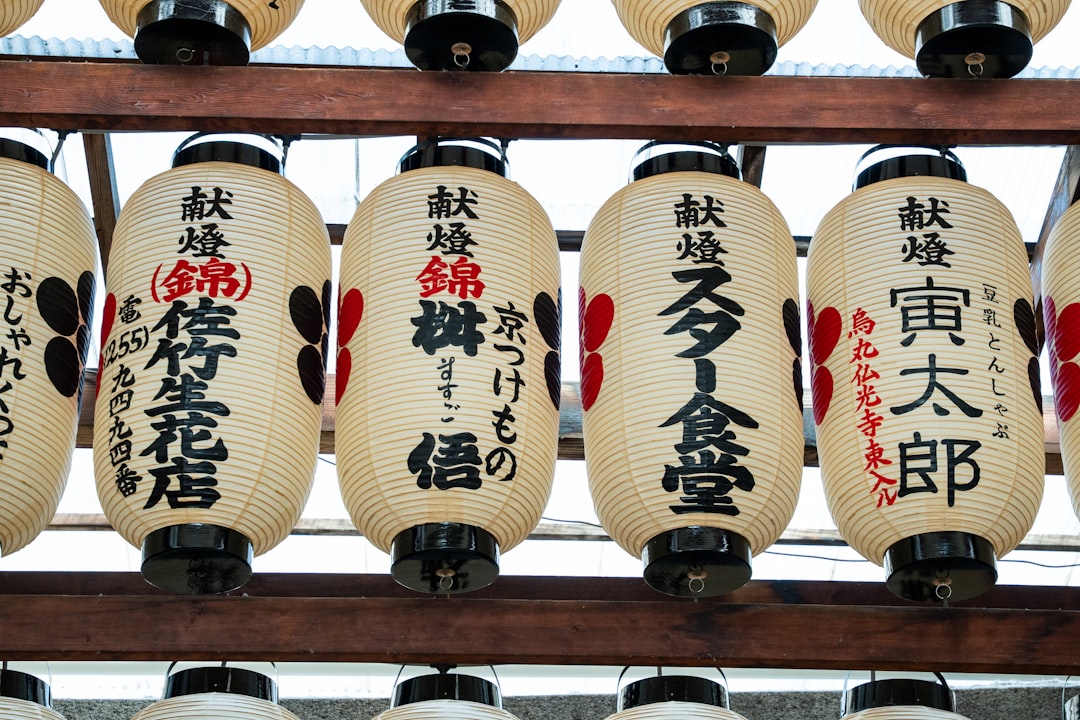 おしゃれ
献燈
(錦)
佐竹生花店
電
(255)九四九四番
献燈
錦
桝
ますご
悟
京つけもの
献燈
スター食堂
献燈
寅太郎
豆乳とんしゃぶ
烏丸仏光寺東入ル